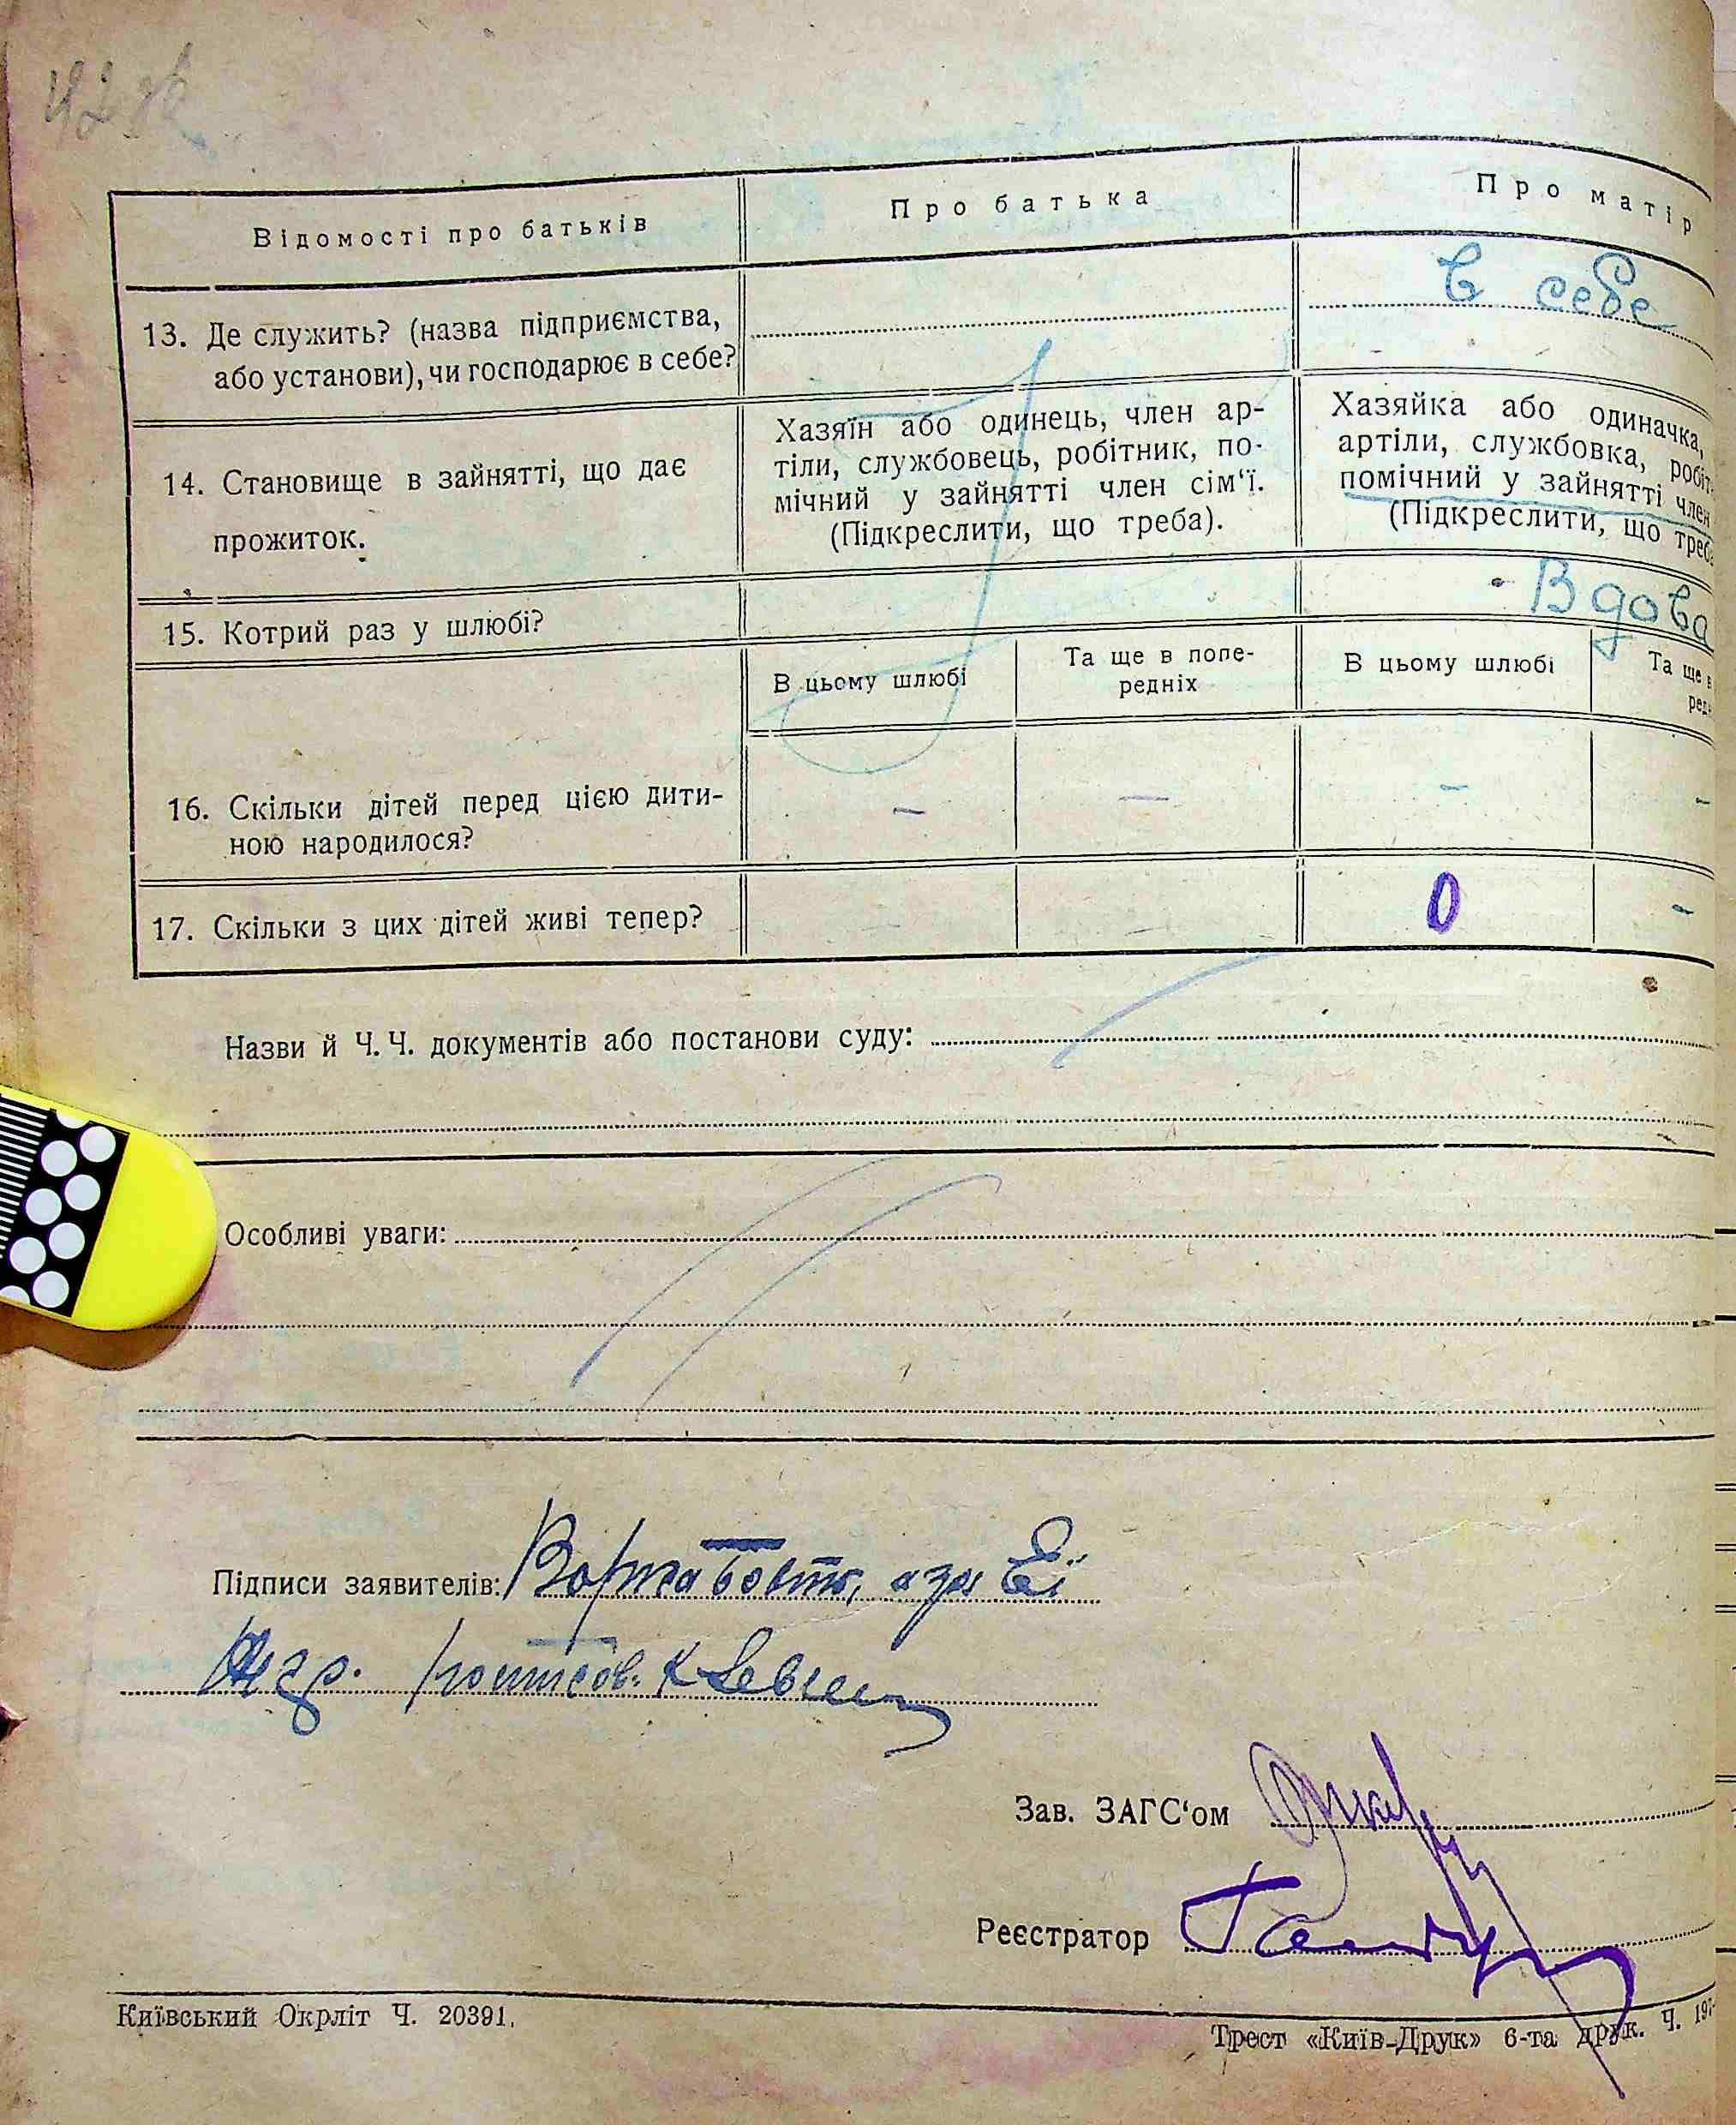 42 зв
Відомості про батьків
Про батька
Про матір
13. Де служить? (назва підприємства,
або установи), чи господарює в себе?
в себе
14. Становище в зайнятті, що дає
прожиток.
Хазяїн або одинець, член ар-
тіли, службовець, робітник, по-
мічний у зайнятті член сім‘ї.
(Підкреслити, що треба).
Хазяйка або одиначка,
артіли, службовка, робіт
помічний у зайнятті член
(Підкреслити, що треб
15. Котрий раз у шлюбі?
Вдова
В цьому шлюбі
Та ще в попе-
редніх
В цьому шлюбі
Та ще в
ред
16. Скільки дітей перед цією дити-
ною народилося?
– – – –
17. Скільки з цих дітей живі тепер?
– – 0 –
Назви й Ч. Ч. документів або постанови суду:
Особливі уваги:
Підписи заявителів: а за Её
Зав. ЗАГС‘ом
Реєстратор
Київський Окрліт Ч. 20391.
Трест «Київ-Друк» 6-та друк. Ч. 197